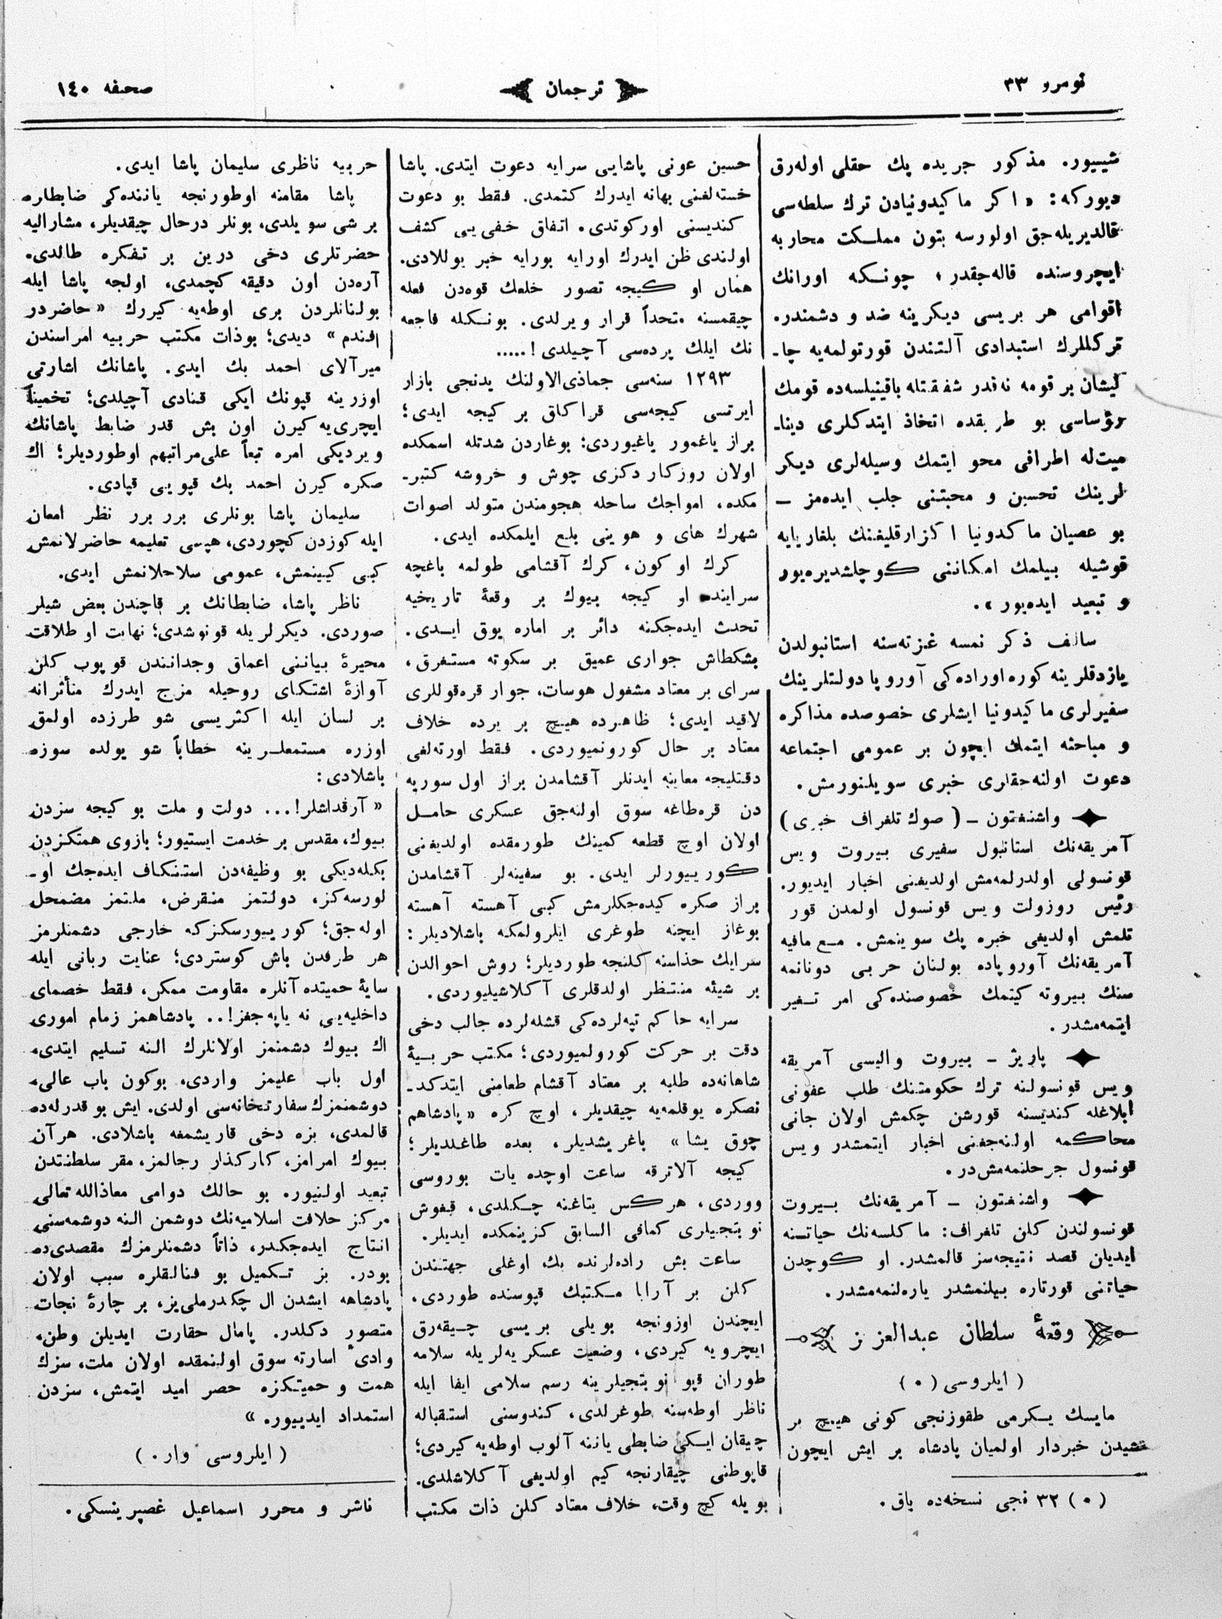 نومرو ٣٣
ترجمان
صحیفه ١٤٠
شییور. مذکور جریده پك حقلی اوله‌رق
دیورکه: «اکر ماکیدونیادن ترك سلطه‌سی
قالدیریله‌جق اولورسه بتون مملکت محاربه
ایچروسنده قاله‌جقدر؛ چونکه اورانك
اقوامی هر بریسی دیکرینه ضد و دشمندر.
ترکلرك استبدادی آلتندن قورتولمه‌یه چا-
لیشان بر قومه نه‌قدر شفقتله باقیلیسه‌ده قومك
رؤساسی بو طریقده اتخاذ ایتدکلری دینا-
میت‌له اطرافی محو ایتمك وسیله‌لری دیکر
لرینك تحسین و محبتنی جلب ایده‌مز -
بو عصیان ماکدونیا اکزارقلیغنك بلغاریایه
قوشیله بیلمك امکاننی کوچلشدیره‌یور
و تبعید ایده‌یور».
سالف ذکر نمسه غزته‌سنه استانبولدن
یازدقلرینه کوره اوراده‌کی آوروپا دولتلرینك
سفیرلری ماکیدونیا ایشلری خصوصده مذاکره
و مباحثه ایتمك ایچون بر عمومی اجتماعه
دعوت اولنه‌جقلری خبری سویلنورمش.
واشنغتون - (صوك تلغراف خبری)
آمریقه‌نك استانبول سفیری بیروت ویس
قونسولی اولدرلمه‌مش اولدیغنی اخبار ایدیور.
رئیس روزولت ویس قونسول اولمدن قور
تلمش اولدیغی خبره پك سوینمش. مع مافیه
آمریقه‌نك آوروپاده بولنان حربی دونانمه
سنك بیروته کیتمك خصوصنده‌کی امر تغیر
ایتمه‌مشدر.
پاریژ - بیروت والیسی آمریقه
ویس قونسولنه ترك حکومتنك طلب عفونی
ابلاغله کندیسنه قورشن چکمش اولان جانی
محاکمه اولنه‌جغنی اخبار ایتمشدر ویس
قونسول جرحلنمه‌مش‌در.
واشنغتون - آمریقه‌نك بیروت
قونسولندن کلن تلغراف: ماکلسه‌نك حیاتنه
ایدیلن قصد نتیجه‌سز قالمشدر. او کوچدن
حیاتنی قورتاره بیلنمشدر یاره‌لنمه‌مشدر.
وقعهٔ سلطان عبدالعزیز
(ایلروسی (٠)
مایسك یکرمی طقوزنجی کونی هیچ بر
شیدن خبردار اولمیان پادشاه بر ایش ایچون
(٠) ٣٢ نجی نسخه‌ده باق.
حسین عونی پاشایی سرایه دعوت ایتدی. پاشا
خسته‌لغنی بهانه ایدرك کتمدی. فقط بو دعوت
کندیسنی اورکوتدی. اتفاق خفی‌یی کشف
اولندی ظن ایدرك اورایه بورایه خبر یوللادی.
همان او کیجه تصور خلعك قوه‌دن فعله
چیقمسنه متحداً قرار ویرلدی. بونکله فاجعه
نك ایلك پرده‌سی آچیلدی!.....
١٢٩٣ سنه‌سی جماذی‌الاولنك یدنجی بازار
ایرتسی کیجه‌سی قراکلق بر کیجه ایدی؛
براز یاغمور یاغیوردی؛ بوغازدن شدتله اسمکده
اولان روزکار دکزی جوش و خروشه کتیر-
مکده، امواجك ساحله هجومندن متولد اصوات
شهرك های و هوینی بلع ایلمکده ایدی.
کرك او کون، کرك آقشامی طولمه باغچه
سراینده او کیجه بیوك بر وقعهٔ تاریخیه
تحدث ایده‌جکنه دائر بر اماره یوق ایدی.
بشکطاش جواری عمیق بر سکوته مستغرق،
سرای بر معتاد مشغول هوسات، جوار قره‌قوللری
لاقید ایدی؛ ظاهرده هیچ بر یرده خلاف
معتاد بر حال کورونمیوردی. فقط اورته‌لغی
دقتلیجه معاینه ایدنلر آقشامدن براز اول سوریه
دن قره‌طاغه سوق اولنه‌جق عسکری حامل
اولان اوچ قطعه کمینك طورمقده اولدیغنی
کورییورلر ایدی. بو سفینه‌لر آقشامدن
براز صکره کیده‌جکلرمش کبی آهسته آهسته
بوغاز ایچنه طوغری ایلرولمکه باشلادیلر:
سرایك حذاسنه کلنجه طوردیلر؛ روش احوالدن
بر شیئه منتظر اولدقلری آکلاشیلیوردی.
سرایه حاکم تپه‌لرده‌کی قشله‌لرده جالب دخی
دقت بر حرکت کورولمیوردی؛ مکتب حربیهٔ
شاهانه‌ده طلبه بر معتاد آقشام طعامنی ایتدکد-
نصکره یوقلمه‌یه چیقدیلر، اوچ کره «پادشاهم
چوق یشا» باغریشدیلر، بعده طاغلدیلر؛
کیجه آلاترقه ساعت اوچده یات بوروسی
ووردی، هرکس یتاغنه چکلدی، قیغوش
نوبتجیلری کمافی السابق کزینمکده ایدیلر.
ساعت بش راده‌لرنده بك اوغلی جهتندن
کلن بر آرابا مکتبك قپوسنده طوردی.
ایچندن اوزونجه بویلی بریسی چیقه‌رق
ایچرویه کیردی، وضعیت عسکریه‌لریله سلامه
طوران قپو نوبتجیلرینه رسم سلامی ایفا ایله
ناظر اوطه‌سنه طوغرلدی، کندوسنی استقباله
چیقان ایکی ضابطی یاننه آلوب اوطه‌یه کیردی؛
قاپوطنی چیقارنجه کیم اولدیغی آکلاشلدی.
بویله کچ وقت، خلاف معتاد کلن ذات مکتب
حربیه ناظری سلیمان پاشا ایدی.
پاشا مقامنه اوطورنجه یاننده‌کی ضابطلره
بر شی سویلدی، بونلر درحال چیقدیلر، مشارالیه
حضرتلری دخی درین بر تفکره طالدی.
آره‌دن اون دقیقه کچمدی، اولجه پاشا ایله
بولنانلردن بری اوطه‌یه کیررك «حاضردر
افندم» دیدی؛ بوذات مکتب حربیه امراسندن
میرآلای احمد بك ایدی. پاشانك اشارتی
اوزرینه قپونك ایکی قنادی آچیلدی؛ تخمیناً
ایچری‌یه کیرن اون بش قدر ضابط پاشانك
ویردیکی امره تبعاً علی‌مراتبهم اوطوردیلر؛ اك
صکره کیرن احمد بك قپویی قپادی.
سلیمان پاشا بونلری برر برر نظر امعان
ایله کوزدن کچوردی، هپسی تعلیمه حاضرلانمش
کبی کیینمش، عمومی سلاحلانمش ایدی.
ناظر پاشا، ضابطانك بر قاچندن بعض شیلر
صوردی. دیکرلریله قونوشدی؛ نهایت او طلاقت
محیرهٔ بیاننی اعماق وجدانندن قوپوب کلن
آوازهٔ اشتکای روحیله مزج ایدرك متأثرانه
بر لسان ایله اکثریسی شو طرزده اولمق
اوزره مستمعلرینه خطاباً شو یولده سوزه
باشلادی:
«آرقداشلر!... دولت و ملت بو کیجه سزدن
بیوك، مقدس بر خدمت ایستیور؛ بازوی همتکزدن
بکله‌دیکی بو وظیفه‌دن استنکاف ایده‌جك او-
لورسه‌کز، دولتمز منقرض، ملتمز مضمحل
اوله‌جق؛ کورییورسکزکه خارجی دشمنلرمز
هر طرفدن باش کوستردی؛ عنایت ربانی ایله
سایهٔ حمیتده آنلره مقاومت ممکن، فقط خصمای
داخلیه‌یی نه یاپه‌جغز!.. پادشاهمز زمام اموری
اك بیوك دشمنمز اولانلرك النه تسلیم ایتدی،
اول باب علیمز واردی، بوکون باب عالی،
دوشمنمزك سفارتخانه‌سی اولدی. ایش بو قدرله‌ده
قالمدی، بزه دخی قاریشمغه باشلادی. هرآن
بیوك امرامز، کارکذار رجالمز، مقر سلطنتدن
تبعید اولنیور. بو حالك دوامی معاذالله تعالی
مرکز خلافت اسلامیه‌نك دوشمن النه دوشمه‌سنی
انتاج ایده‌جکدر، ذاتاً دشمنلرمزك مقصدی‌ده
بودر. بز تکمیل بو فنالقلره سبب اولان
پادشاهه ایشدن ال چکدرملی‌یز، بر چارهٔ نجات
متصور دکلدر. پامال حقارت ایدیلن وطن،
وادیٔ اسارته سوق اولنمقده اولان ملت، سزك
همت و حمیتکزه حصر امید ایتمش، سزدن
استمداد ایدییور.»
(ایلروسی وار.)
ناشر و محرر اسماعیل غصپرینسکی.